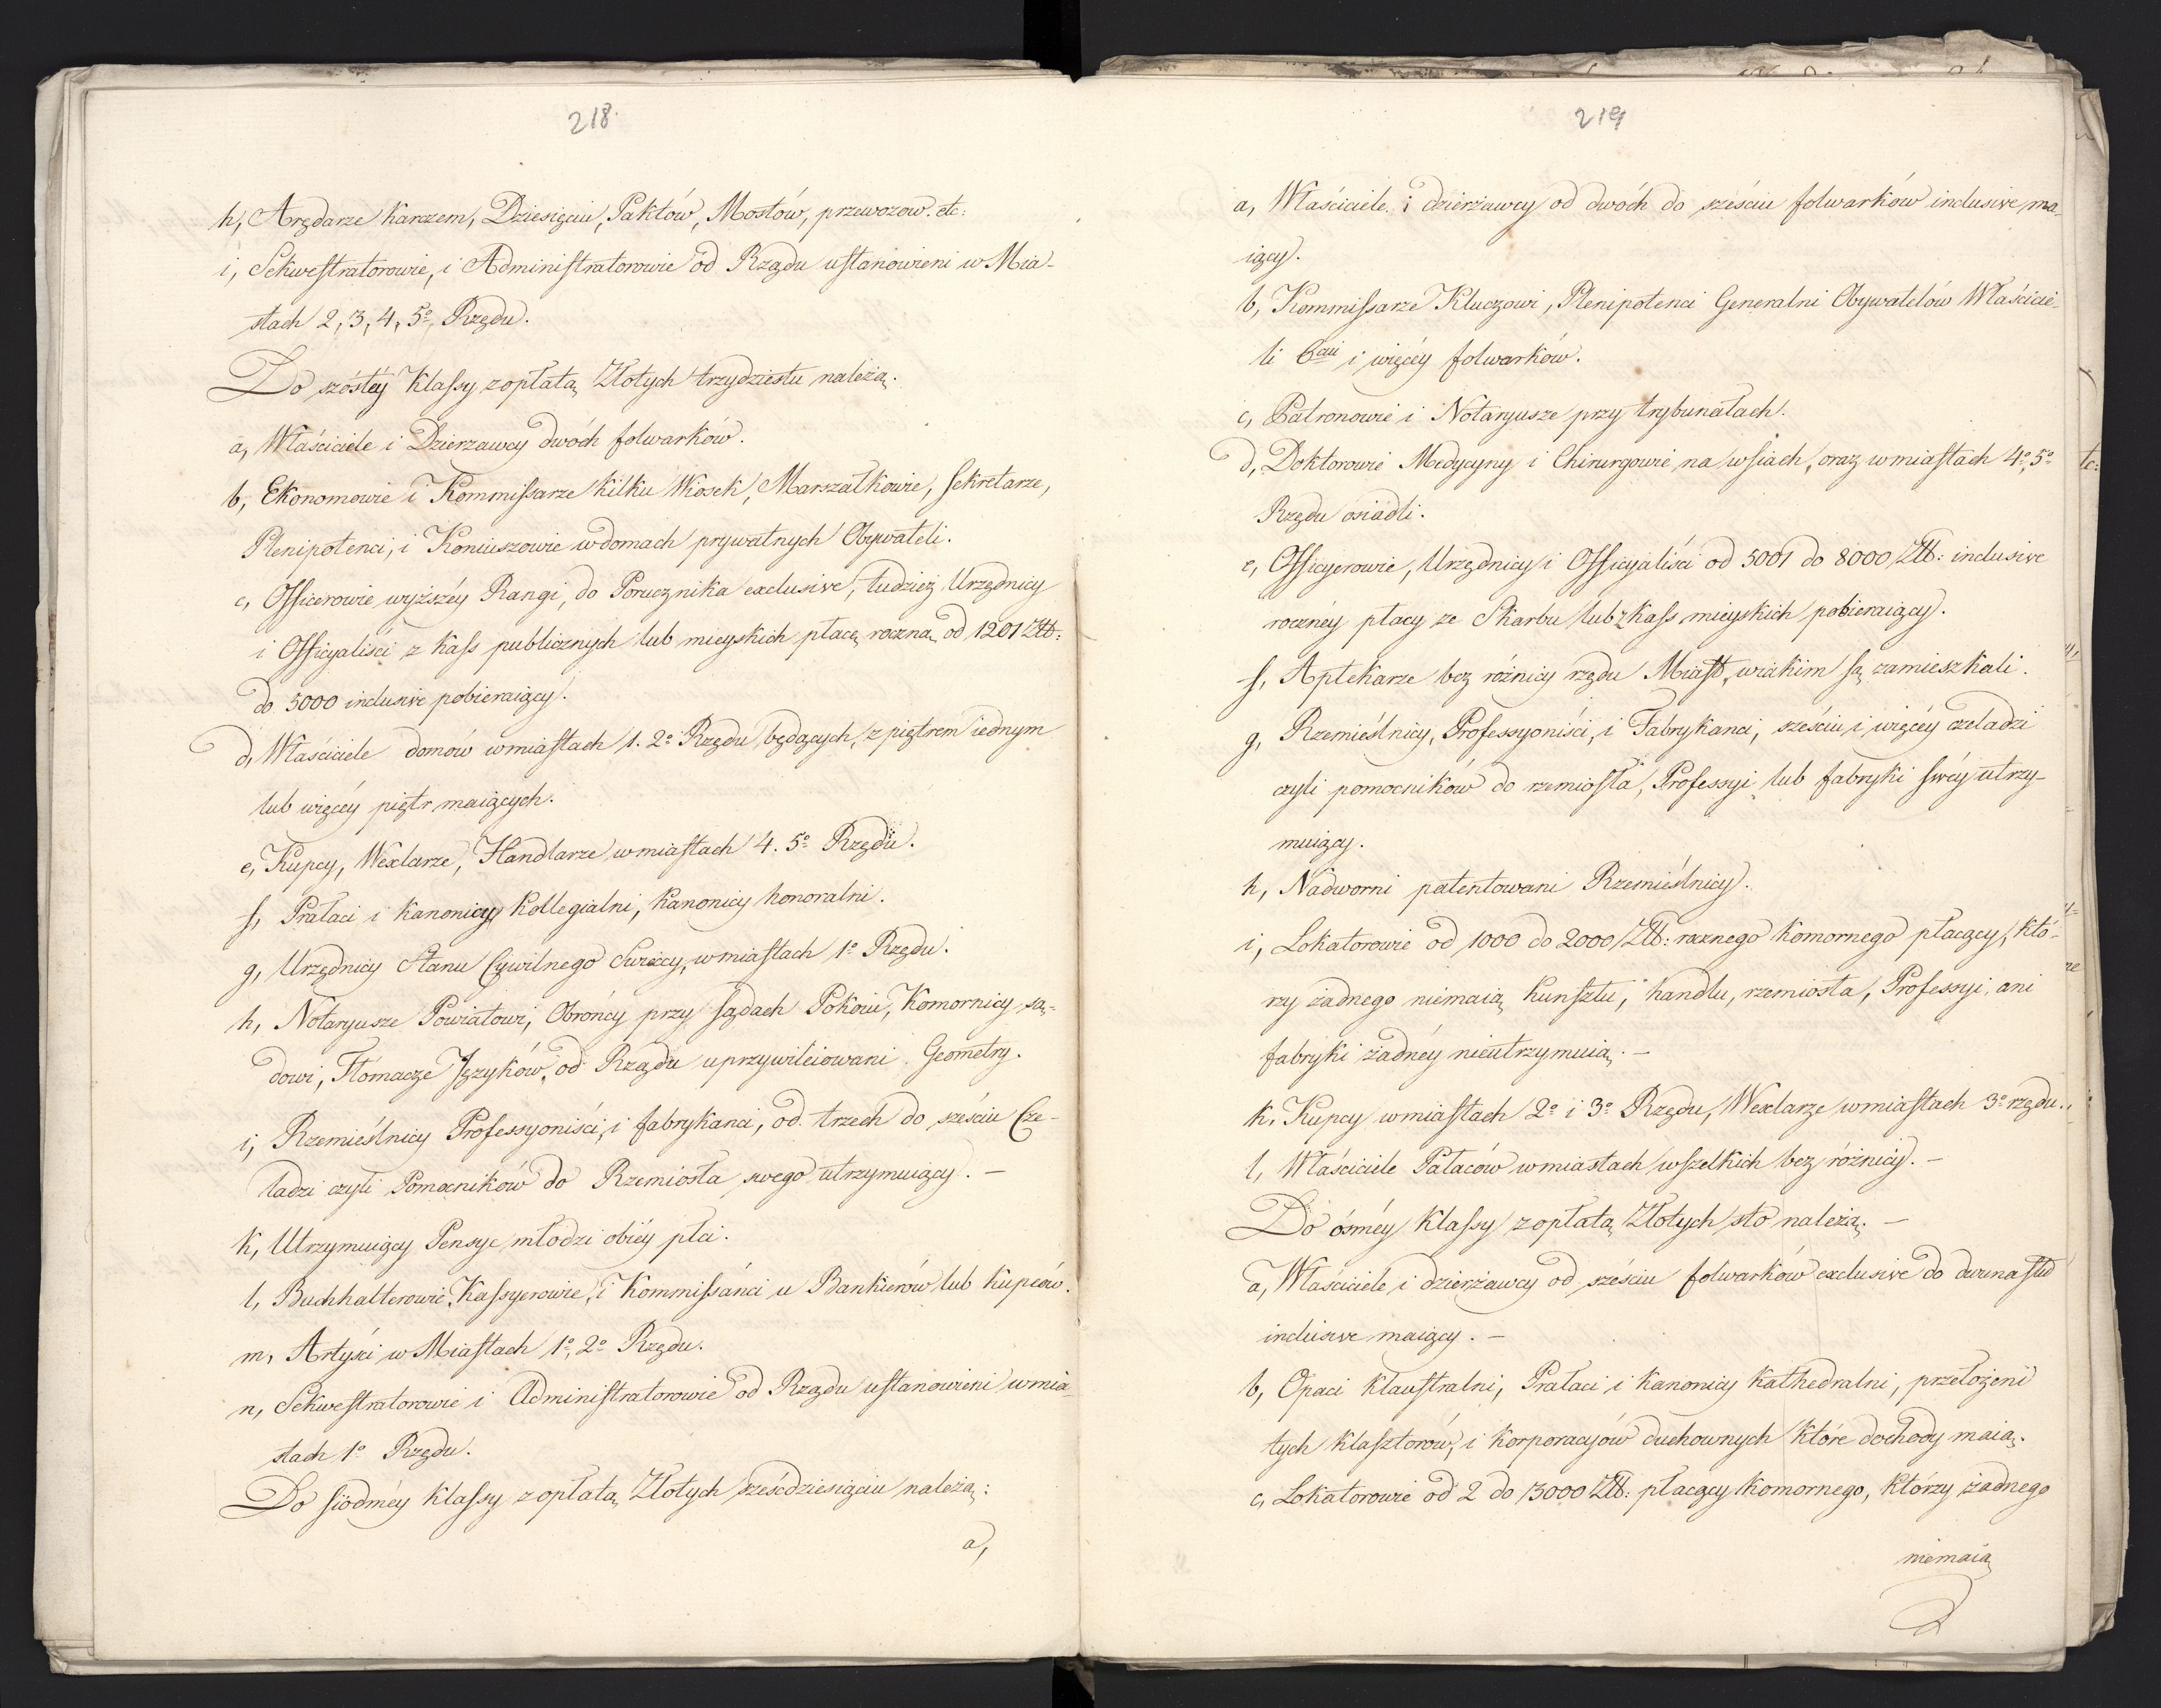 218.
h, Arędarze karczem, Dziesięciu, Paktów, Mostów, przewozow. etc:
i, Sekwestratorowie, i Administratorowie od Rządu ustanowieni w Mia-
stach 2, 3, 4, 5º Rzędu.
Do szóstéy Klassy z opłatą Złotych trzydziestu należą.
a, Właściciele i Dzierzawcy dwóch folwarków.
b, Ekonomowie i Kommissarze kilku Wiosek, Marszałkowie, Sekretarze,
Plenipotenci, i Koniuszowie w domach prywatnych Obywateli.
c, Officerowie wyższéy Rangi, do Porucznika exclusive, tudzież Urzędnicy
i Officyaliści z kass publicznych lub mieyskich płacę roczną od 1201 Złł:
do 5000 inclusive pobieraiący.
d, Właściciele domów w miastach 1. 2º Rzędu będących, z piętrem iednym
lub więcéy piętr maiących.
e, Kupcy, Wexlarze, Handlarze w miastach 4. 5º Rzędu.
f, Prałaci i Kanonicy Kollegialni, Kanonicy honoralni.
g, Urzędnicy Stanu Cywilnego Swieccy, w miastach 1º Rzędu.
h, Notaryusze Powiatowi, Obrońcy przy sądach Pokoiu, Komornicy są-
dowi, Tłomacze Języków, od Rządu uprzywileiowani Geometry.
i, Rzemieślnicy Professyoniści, i fabrykanci, od trzech do sześciu Cze-
ladzi czyli Pomocników do Rzemiosła swego utrzymuiący. –
k, Utrzymuiący Pensye młodzi obiéy płci.
l, Buchhalterowie, Kassyerowie, i Kommissanci u Bankierów lub kupców.
m, Artyści w Miastach 1º, 2º Rzędu.
n, Sekwestratorowie i Administratorowie od Rządu ustanowieni w mia
stach 1º Rzędu.
Do siodméy klassy z opłatą Złotych sześćdziesiąciu należą:
a,
219
a, Właściciele i dzierżawcy od dwóch do sześciu folwarków inclusive ma-
iący.
b, Kommissarze Kluczowi, Plenipotenci Generalni Obywatelów Właścicie-
li 6ciu i więcéy folwarków.
c, Patronowie i Notaryusze przy trybunałach.
d, Doktorowie Medycyny i Chirurgowie na wsiach, oraz w miastach 4º, 5º
Rzędu osiadli.
e, Officyerowie, Urzędnicy i Officyaliści od 5001 do 8000 Złł: inclusive
rocznéy płacy ze Skarbu lub z kass mieyskich pobieraiący.
f, Aptekarze bez różnicy rzędu Miast, w iakim są zamieszkali.
g, Rzemieślnicy, Professyoniści, i Fabrykanci, sześciu i więcéy czeladzi
czyli pomocników do rzemiosła, Professyi lub fabryki swéy utrzy-
muiący.
h, Nadworni patentowani Rzemieślnicy.
i, Lokatorowie od 1000 do 2000 Złł: rocznego komornego płacący, któ-
rzy żadnego niemaią kunsztu, handlu, rzemiosła, Professyi, ani
fabryki żadnéy nieutrzymuią. –
k, Kupcy w miastach 2º i 3º Rzędu, Wexlarze w miastach 3º rzędu.
l, Właściciele Pałaców w miastach wszelkich bez różnicy. –
Do ósméy Klassy z opłatą Złotych sto należą. –
a, Właściciele i dzierżawcy od sześciu folwarków exclusive do dwunastu
inclusive maiący. –
b, Opaci klaustralni, Prałaci i Kanonicy Kathedralni, przełożeni
tych klasztorów, i korporacyów duchownych które dochody maią.
c, Lokatorowie od 2 do 3000 Złł: płacący komornego, którzy żadnego
niemaią